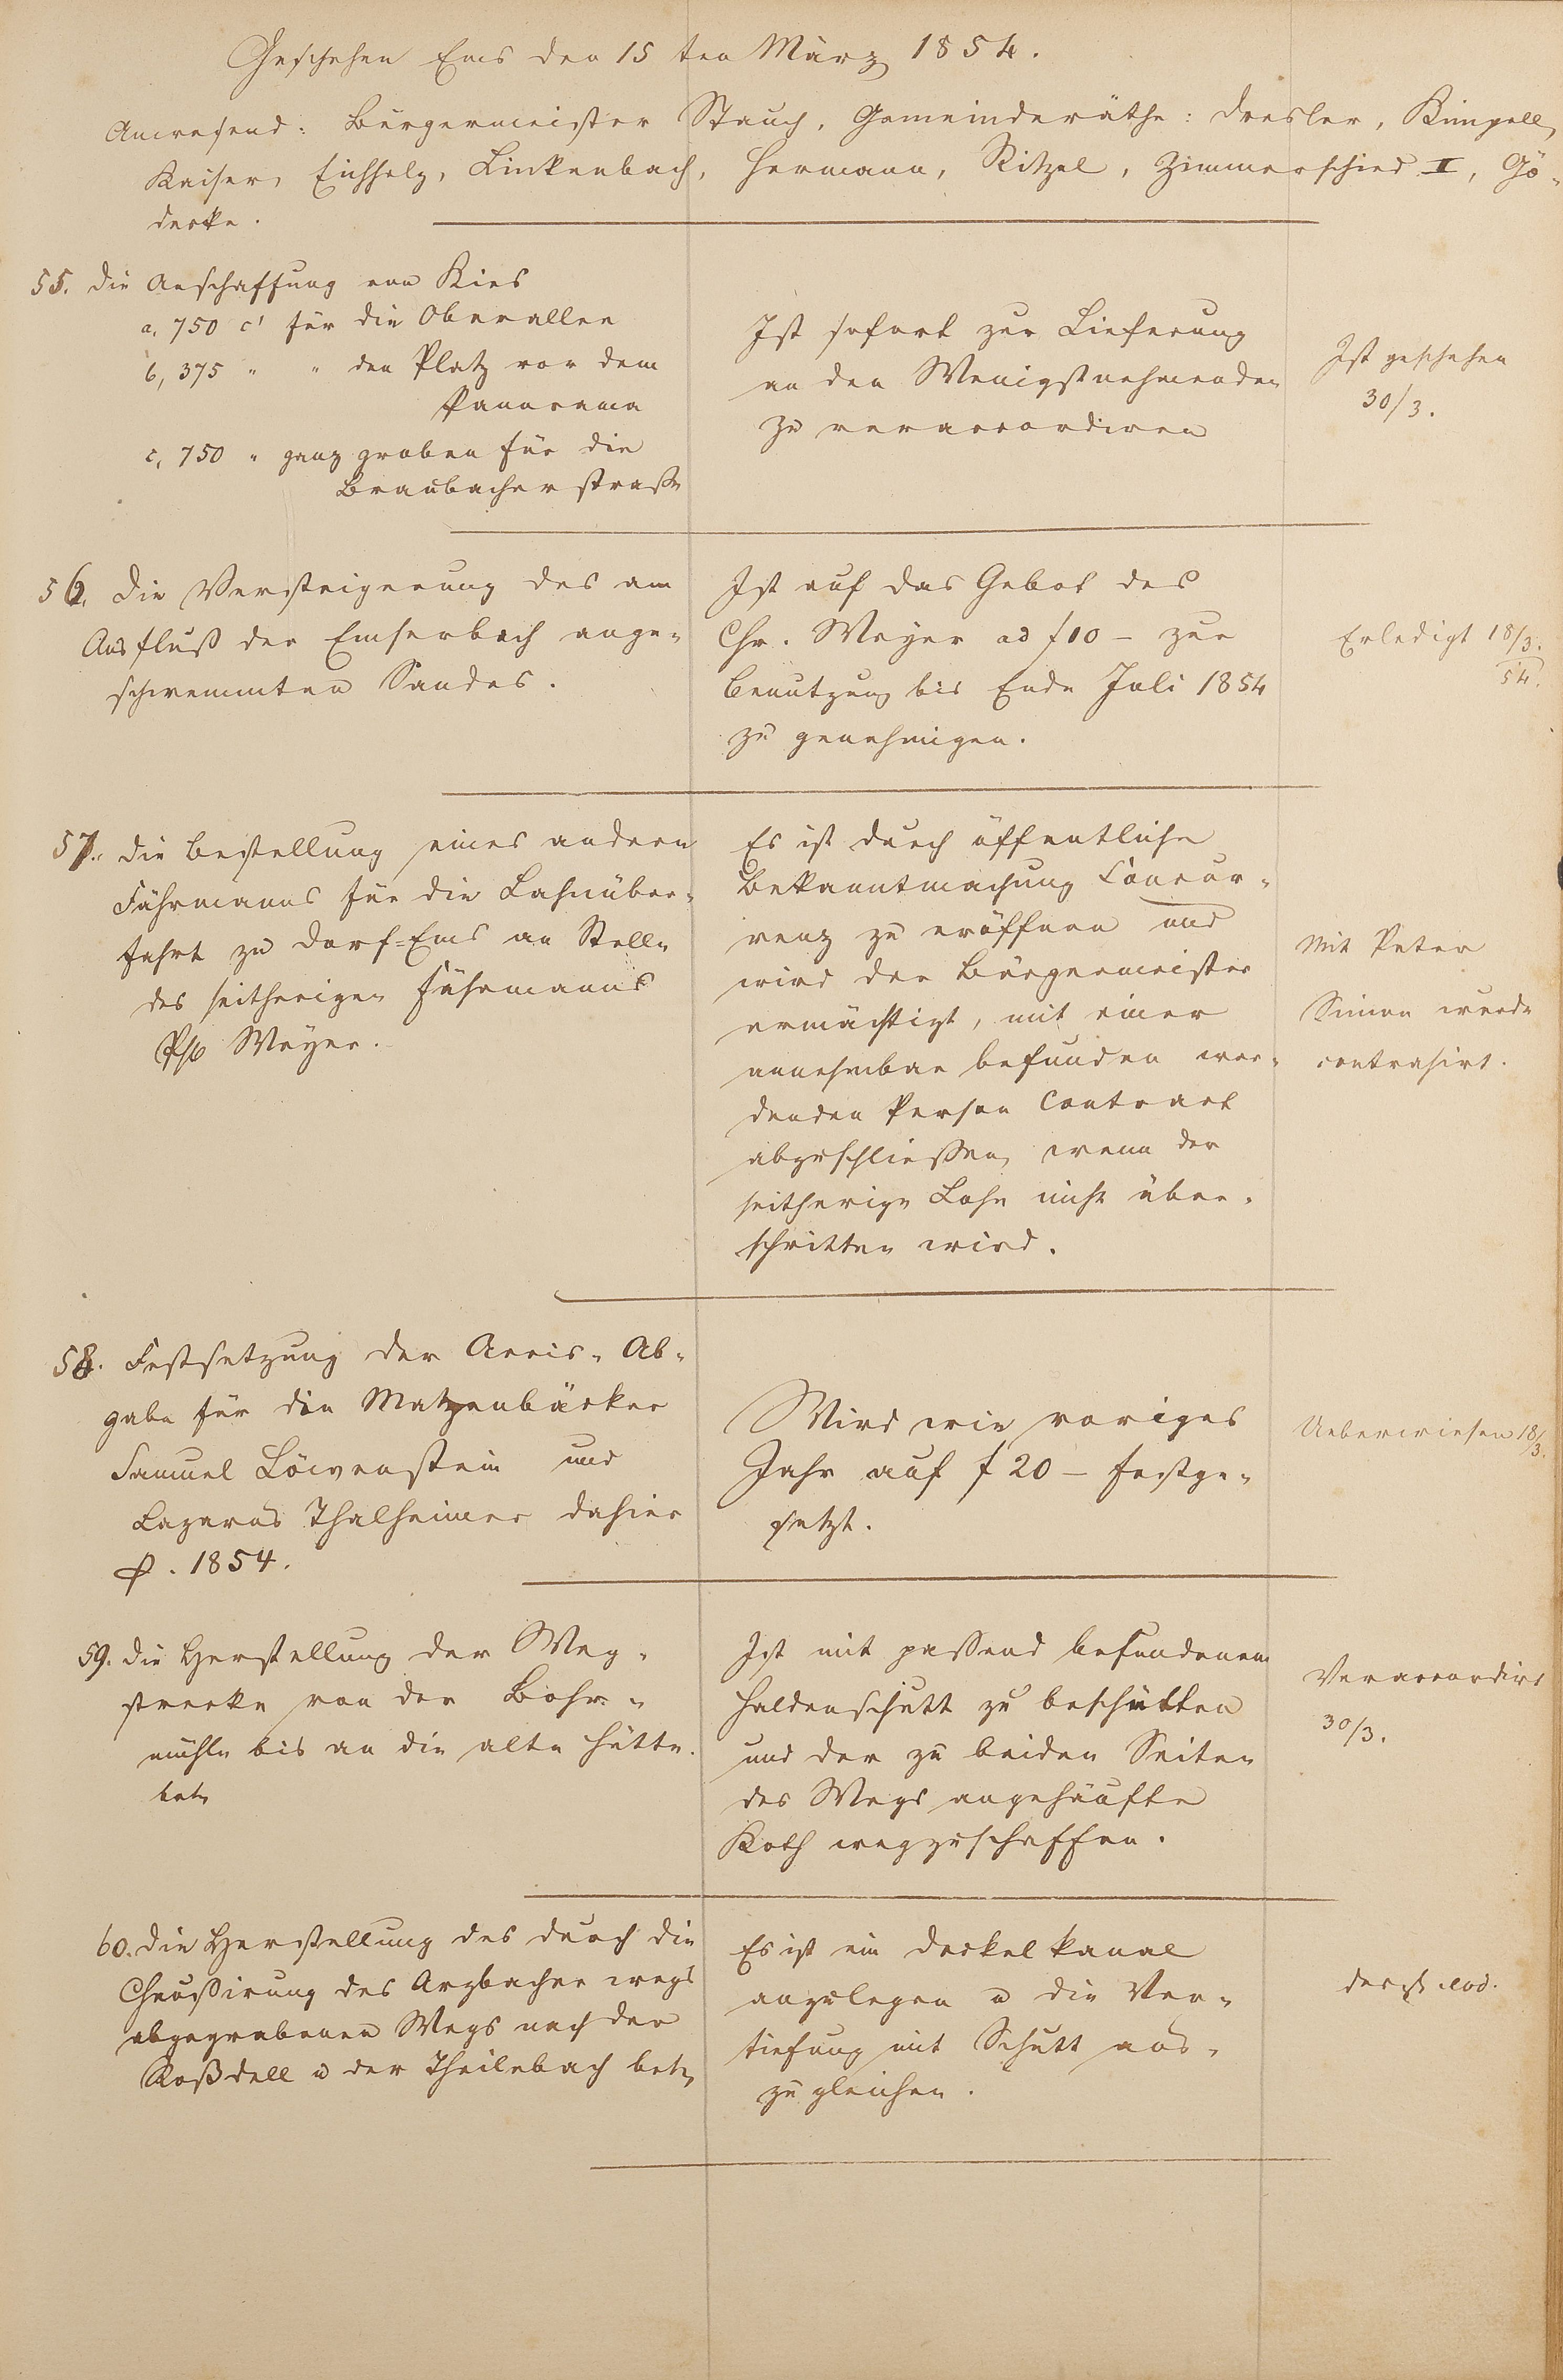 Geschehen Ems den 15ten März 1854.
Anwesend: Bürgermeister Stauch, Gemeinderäthe: Dresler, Kimpell,
Kaiser, Eichholz, Linkenbach, Hermann, Ritzel, Zimmerschied II, Gö-
decke.
55. Die Anschaffung von Kies
a, 750 c' für die Oberallee
b, 375 " " den Platz vor dem
Panorama
c, 750 " ganz groben für die
Braubacherstraße
Ist sofort zur Lieferung
an den Wenigstnehmenden
zu veraccordiren
Ist geschehen
30/3.
56. Die Versteigerung des am
Ausfluß der Emserbach ange-
schwemmten Sandes.
Ist auf das Gebot des
Chr. Meyer ad f 10 – zur
Benutzung bis Ende Juli 1854
zu genehmigen.
Erledigt 18/3.
54.
57. Die Bestellung eines andern
Fährmanns für die Lahnüber-
fahrt zu Dorf-Ems an Stelle
des seitherigen Fährmanns
Meyer.
Es ist durch öffentliche
Bekanntmachung Concur-
renz zu eröffnen und
wird der Bürgermeister
ermächtigt, mit einer
annehmbar befunden wer-
denden Person Contract
abzuschließen, wenn der
seitherige Lohn nicht über-
schritten wird.
Mit Peter
Simon wurde
contrahirt.
58. Festsetzung der Accis-Ab-
gabe für die Matzenbäcker
Samuel Löwenstein und
Lazarus Thalheimer dahier
p. 1854.
Wird wie voriges
Jahr auf f 20 – festge-
setzt.
Ueberwiesen 18/3.
59. Die Herstellung der Weg-
strecke von der Bohr-
mühle bis an die alte Hütte.
betr
Ist mit passend befundenem
Haldenschutt zu beschütten
und der zu beiden Seiten
des Wegs angehäufte
Koth wegzuschaffen.
Veraccordirt
30/3.
60. Die Herstellung des durch die
Chaussirung des Arzbacher wegs
abgegrabenen Wegs nach der
Roßdell u der Theilebach betr
Es ist ein Deckelkanal
anzulegen u die Ver-
tiefung mit Schutt aus-
zugleichen.